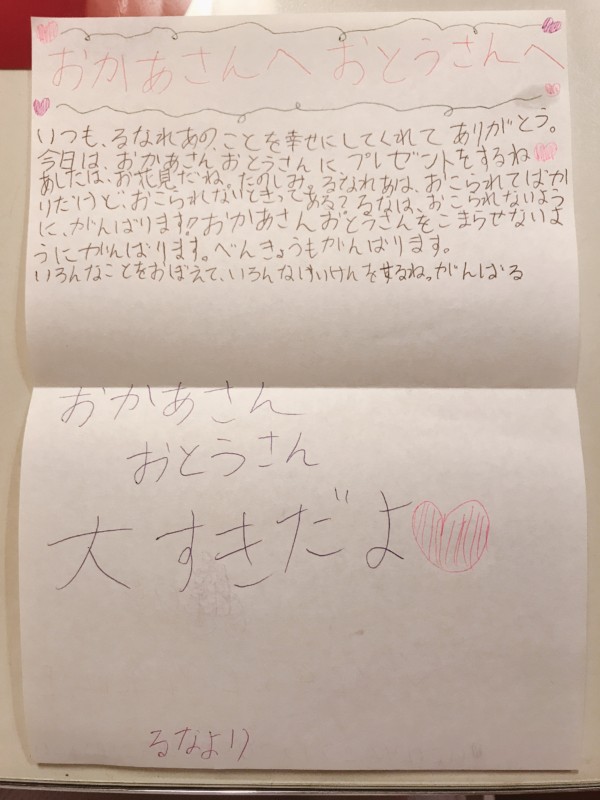 おかあさんへ おとうさんへ
いつも、るなれあの、ことを幸せにしてくれて ありがとう。
今日は、おかあさん おとうさんに プレゼントをするね♡
あしたは、お花見だね。たのしみ。るなれあは、おこられてばか
りだけど、おこられないときってある?るなは、おこられないよう
に、がんばります!!おかあさん おとうさんをこまらせないよ
うにがんばります。べんきょうもがんばります。
いろんなことをおぼえて、いろんなけいけんをするね。がんばる
おかあさん
おとうさん
大すきだよ♡
るなより